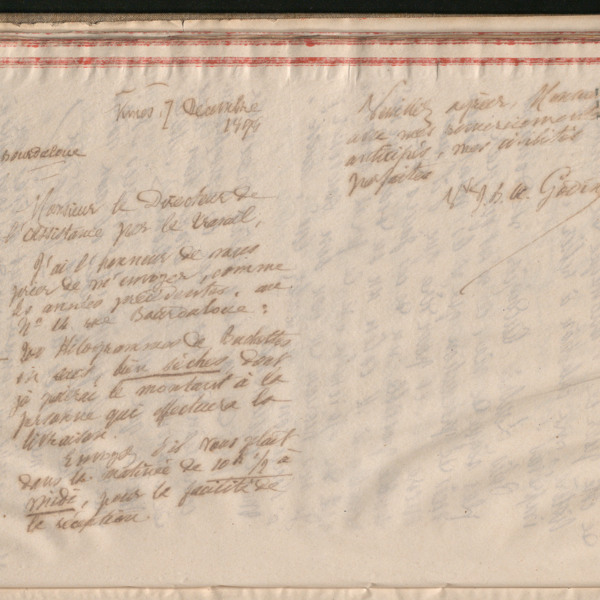 7 Décembre
Bourdaloue
Monsieur le Directeur de
l'assistance par le travail,
J'ai l'honneur de vous
prier de m'envoyer, comme
les années précédentes, au
N° 14 rue Bourdaloue :
Kilogrammes de
en sacs, bien sèches, dont
je paierai le montant à la
personne qui effectuera la
livraison.
Envoyez s'il vous plait
dans la matinée de 10h 1/2 à
midi, pour la facilité de
la réception.
Veuillez agréer,
avec mes remerciements
anticipés, mes civilités
parfaites